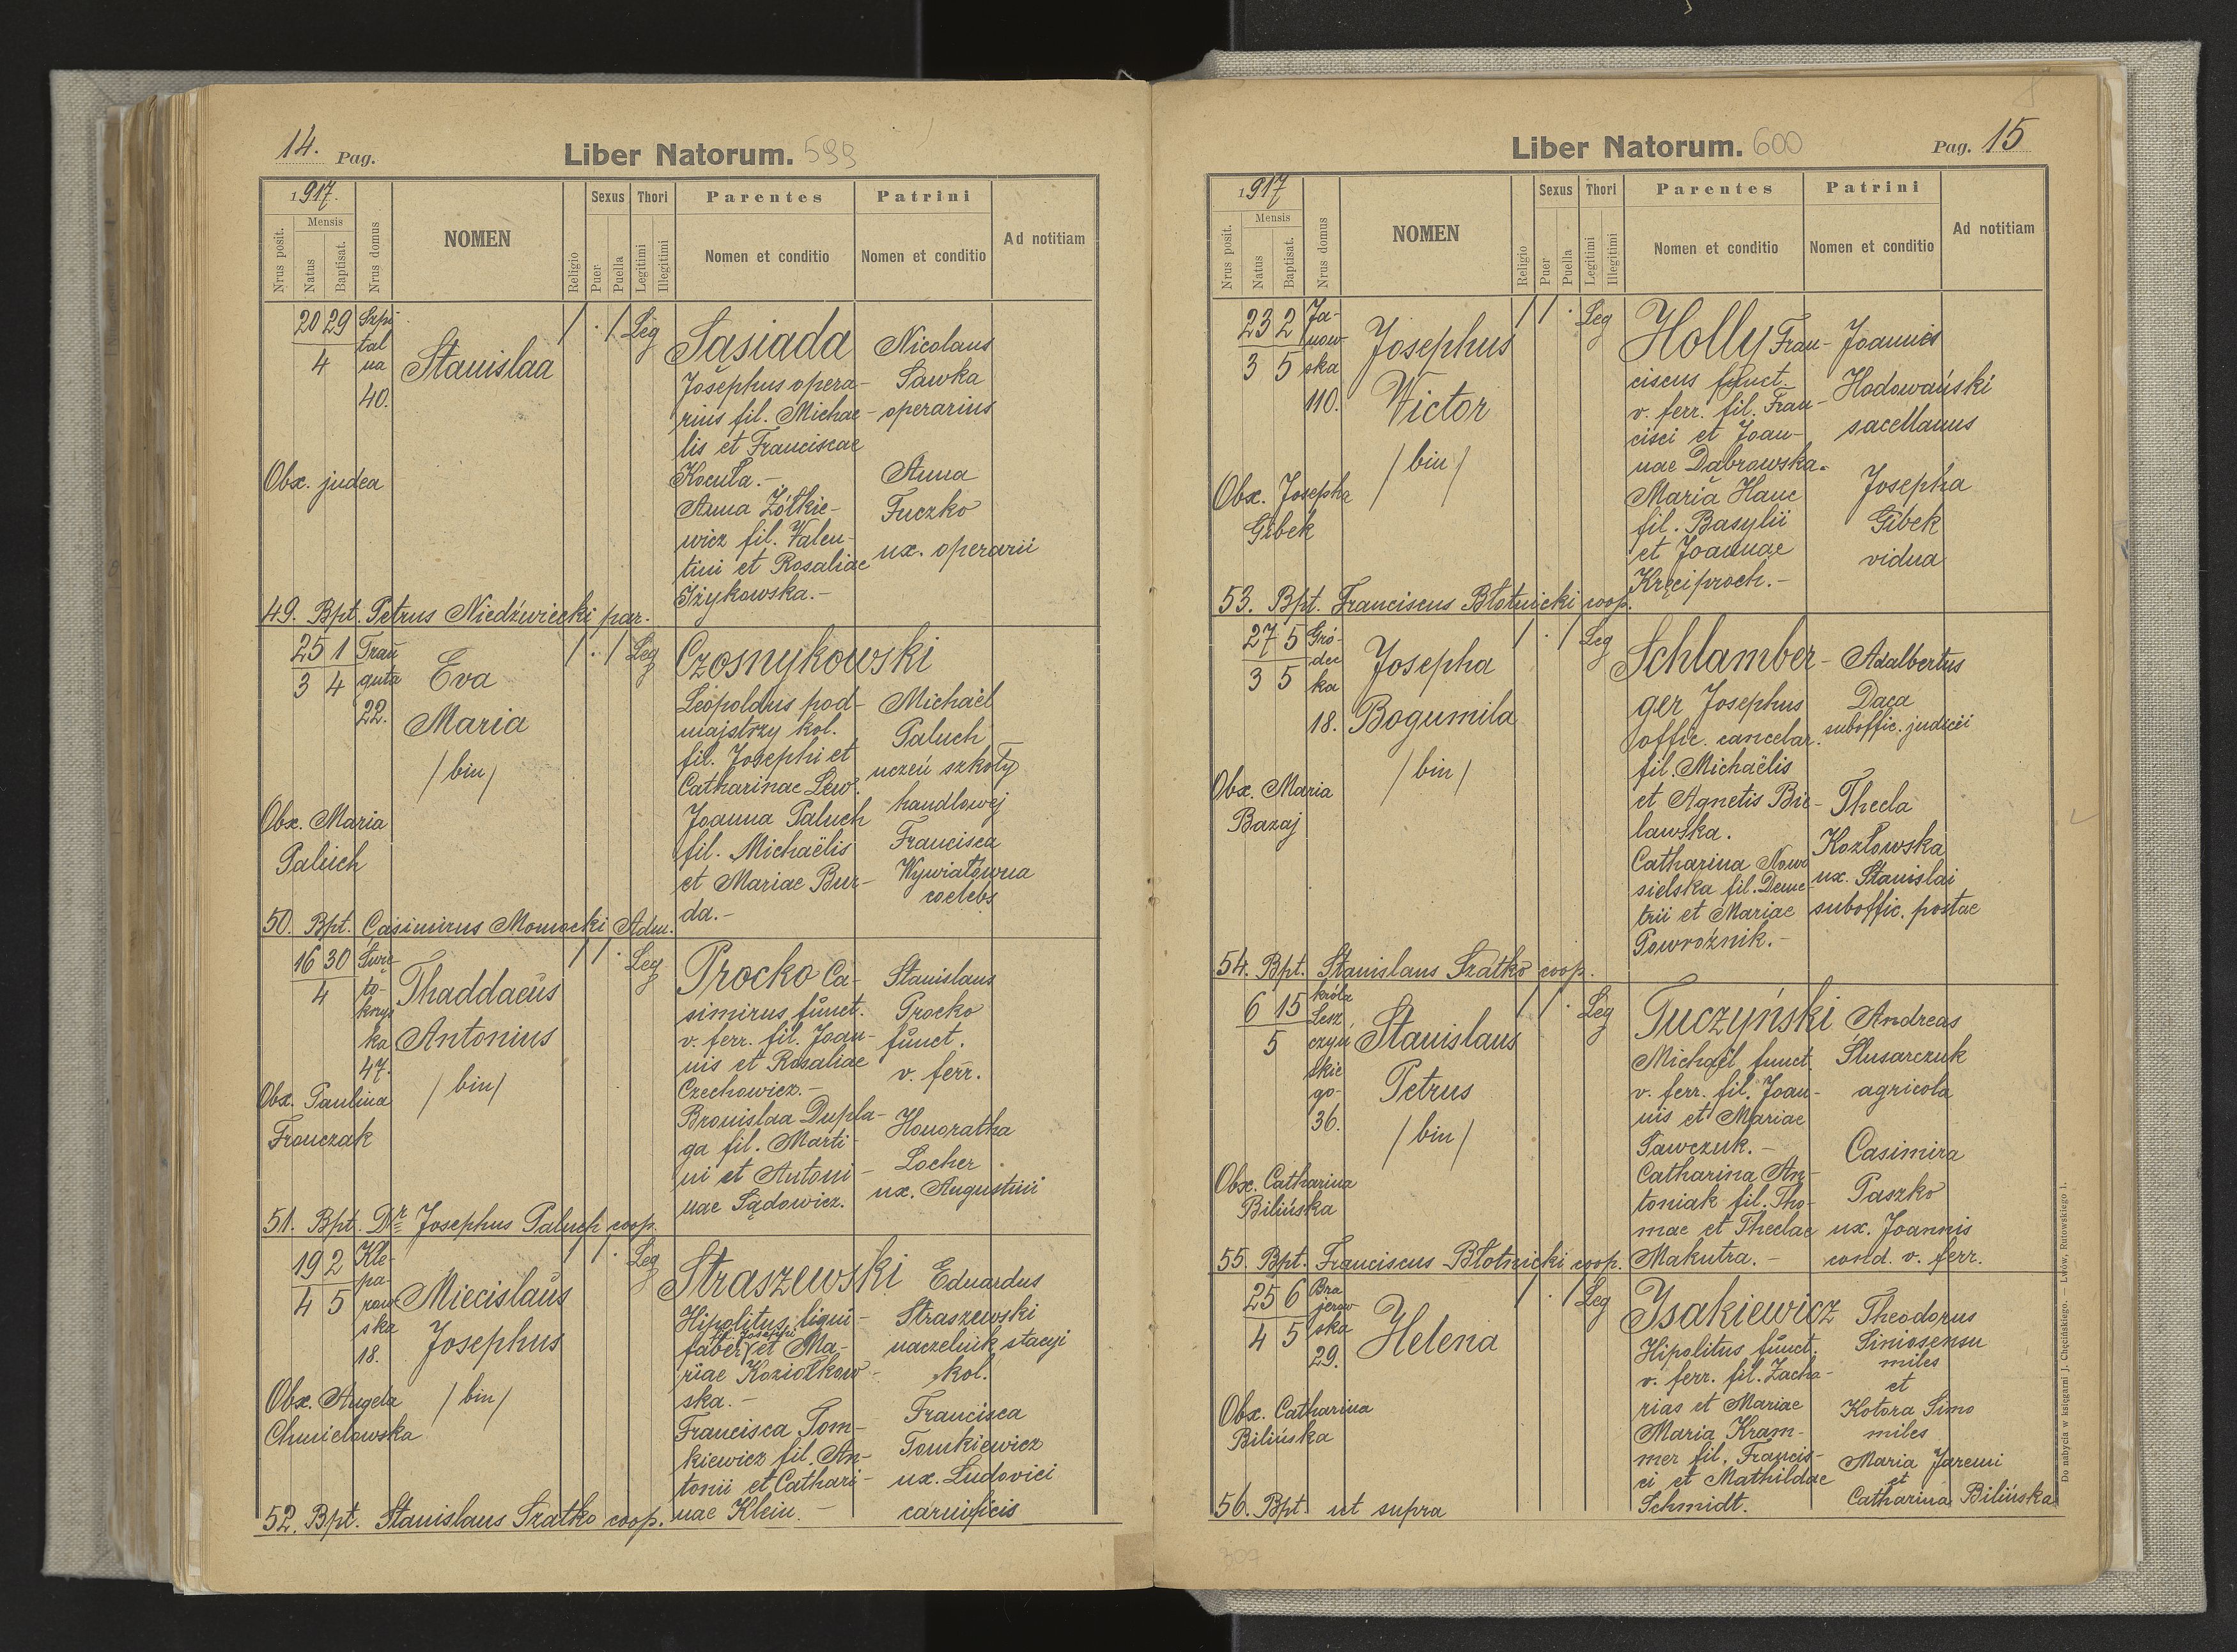 14. Pag.
Liber Natorum. 599
1917.
Nrus posit.
Mensis
Natus
Baptisat.
Nrus domus
NOMEN
Religio
Sexus
Puer
Puella
Thori
Legitimi
Illegitimi
Parentes
Nomen et conditio
Patrini
Nomen et conditio
Ad notitiam
20 29
4
Szpi
tal
na
40.
Stanislaa
/ · / Leg
Sasiada
Josephus opera-
rius fil. Michae-
lis et Franciscae
Kocuła.-
Anna Żółkie-
wicz fil. Valen-
tini et Rosaliae
Iżykowska.-
Nicolaus
Sawka
operarius
Anna
Fuczko
ux. operarii
Obx. judea
49. Bpt. Petrus Niedźwiecki par.
25 1
3 4
Trau
guta
22.
Eva
Maria
/bin/
/ · / Leg
Czosnykowski
Leopoldus pod-
majstrzy kol.
fil. Josephi et
Catharinae Lew.
Joanna Paluch
fil. Michaëlis
et Mariae Bur-
da.-
Michaël
Paluch
uczeń szkoły
handlowej
Francisca
Wywiałówna
coelebs
Obx. Maria
Paluch
50. Bpt. Casimirus Momocki Adm.
16 30
4
Świę-
to-
krzys
ka
47.
Thaddaeus
Antonius
/bin/
/ / · Leg
Procko Ca-
simirus funct.
v. ferr. fil. Joan-
nis et Rosaliae
Czechowicz.-
Bronislaa Dupla-
ga fil. Marti-
ni et Antoni-
nae Sądowicz.
Stanislaus
Procko
funct.
v. ferr.
Honoratha
Locher
ux. Augustini
Obx. Paulina
Fronczak
51. Bpt. Dr Josephus Paluch coop.
19 2
4 5
Kle-
pa-
row
ska
18.
Miecislaus
Josephus
/bin/
/ / · Leg
Straszewski
Hipolitus, ligni-
fil. Josephi
faber et Ma-
riae Koziołkow-
ska.-
Francisca Tom-
kiewicz fil. An-
tonii et Cathari-
nae Klein.-
Eduardus
Straszewski
naczelnik stacyi
kol.
Francisca
Tomkiewicz
ux. Ludovici
carnificis
Obx. Angela
Chmielowska
52. Bpt. Stanislaus Szatko coop.
Liber Natorum. 600
Pag. 15
1917
Nrus posit.
Mensis
Natus
Baptisat.
Nrus domus
NOMEN
Religio
Sexus
Puer
Puella
Thori
Legitimi
Illegitimi
Parentes
Nomen et conditio
Patrini
Nomen et conditio
Ad notitiam
23 2
3 5
Ja-
now-
ska
110.
Josephus
Victor
/bin/
/ / · Leg
Holly Fran-
ciscus funct.
v. ferr. fil. Fran-
cisci et Joan-
nae Dąbrowska.
Maria Hanc
fil. Basylii
et Joannae
Kręciproch.-
Joannes
Hodowański
sacellanus
Josepha
Gibek
vidua
Obx. Josepha
Gibek
53. Bpt. Franciscus Błotnicki coop.
27 5
3 5
Gró-
dec
ka
18.
Josepha
Bogumila
/bin/
/ · / Leg
Schlamber-
ger Josephus
offic. cancelar.
fil. Michaëlis
et Agnetis Bie-
lawska.
Catharina Nowo
sielska fil. Deme-
trii et Mariae
Powroźnik.-
Adalbertus
Daca
suboffic. judicii
Thecla
Kozłowska
ux. Stanislai
suboffic. postae
Obx. Maria
Bazaj
54. Bpt. Stanislaus Szatko coop.
6 15
5
króla
Lesz
czyń
skie
go-
36.
Stanislaus
Petrus
/bin/
/ / · Leg
Tuczyński
Michaël funct.
v. ferr. fil. Joan-
nis et Mariae
Sawczuk.-
Catharina An-
toniak fil. Tho-
mae et Theclae
Makutra.-
Andreas
Ślusarczuk
agricola
Casimira
Paszko
ux. Joannis
cond. v. ferr.
Obx. Catharina
Bilińska
55. Bpt. Franciscus Błotnicki coop.
25 6
4 5
Bra
jerow
ska
29.
Helena
/ · / Leg
Isakiewicz
Hipolitus funct.
v. ferr. fil. Zacha-
rias et Mariae
Maria Kram-
mer fil. Francis-
ci et Mathildae
Schmidt.
Theodorus
Siniosensu
miles
et
Kotora Simo
miles
Maria Jaremi
et
Catharina Bilińska
Obx. Catharina
Bilińska
56. Bpt. ut supra
Do nabycia w księgarni J. Chęcińskiego. — Lwów, Rutowskiego 1.
309